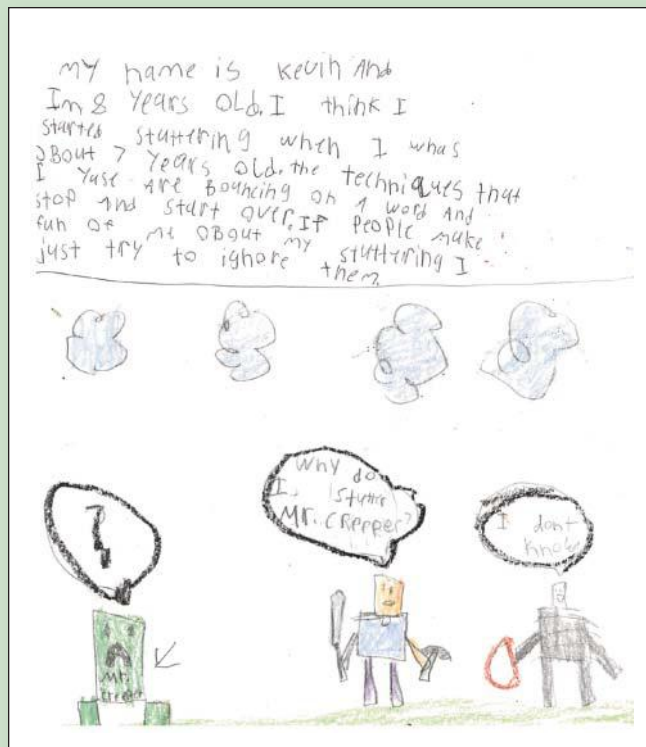 MY name is Kevin And
Im 8 Years OLd. I think I
started stuttering when I whas
OBout 7 Years OLd. the techniques that
I Yuse Are Bouncing on A word And
stop And start over. If People make
fun of me OBout my stuttering I
just try to ignore them.
Why do
I stutter
Mr. CReeper?
I dont
know
Mr.
creeper